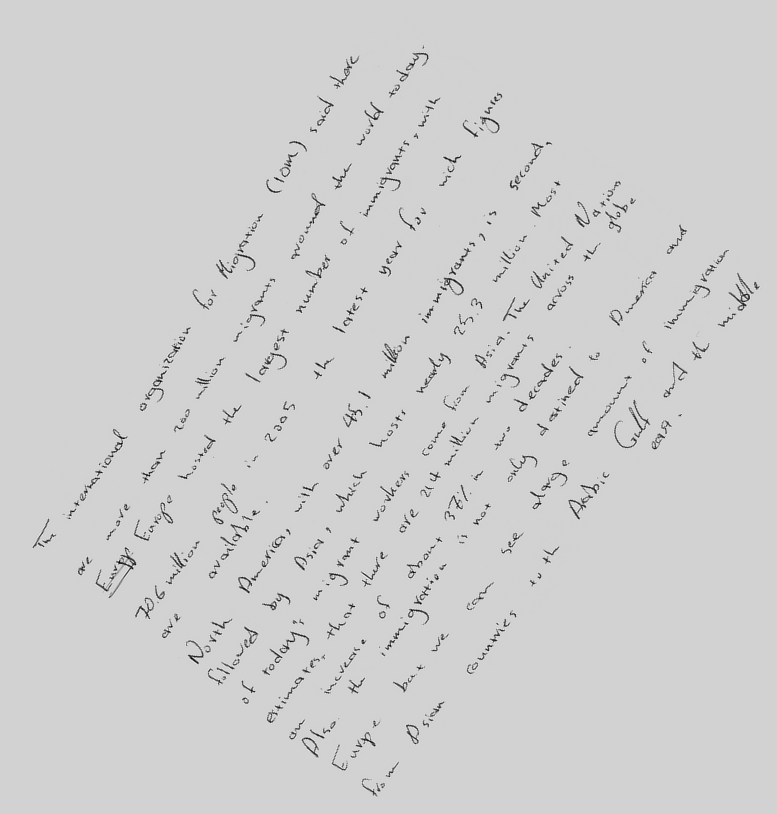 The international organization for Migration (IOM) said there
are more than 200 million migrants around the world today.
Europe hosted the largest number of immigrants, with
70.6 million people in 2005 the latest year for wich figures
are available.
North America, with over 45.1 million immigrants, is second,
followed by Asia, which hosts nearly 25.3 million. Most
of today's migrant workers come from Asia. The United Nations
estimates, that there are 214 million migrants across the globe
an increase of about 37% in two decades.
Also the immigration is not only destined to America and
Europe but we can see alarge amount of immigration
from Asian countries to th Arabic Gulf and the middle
east.